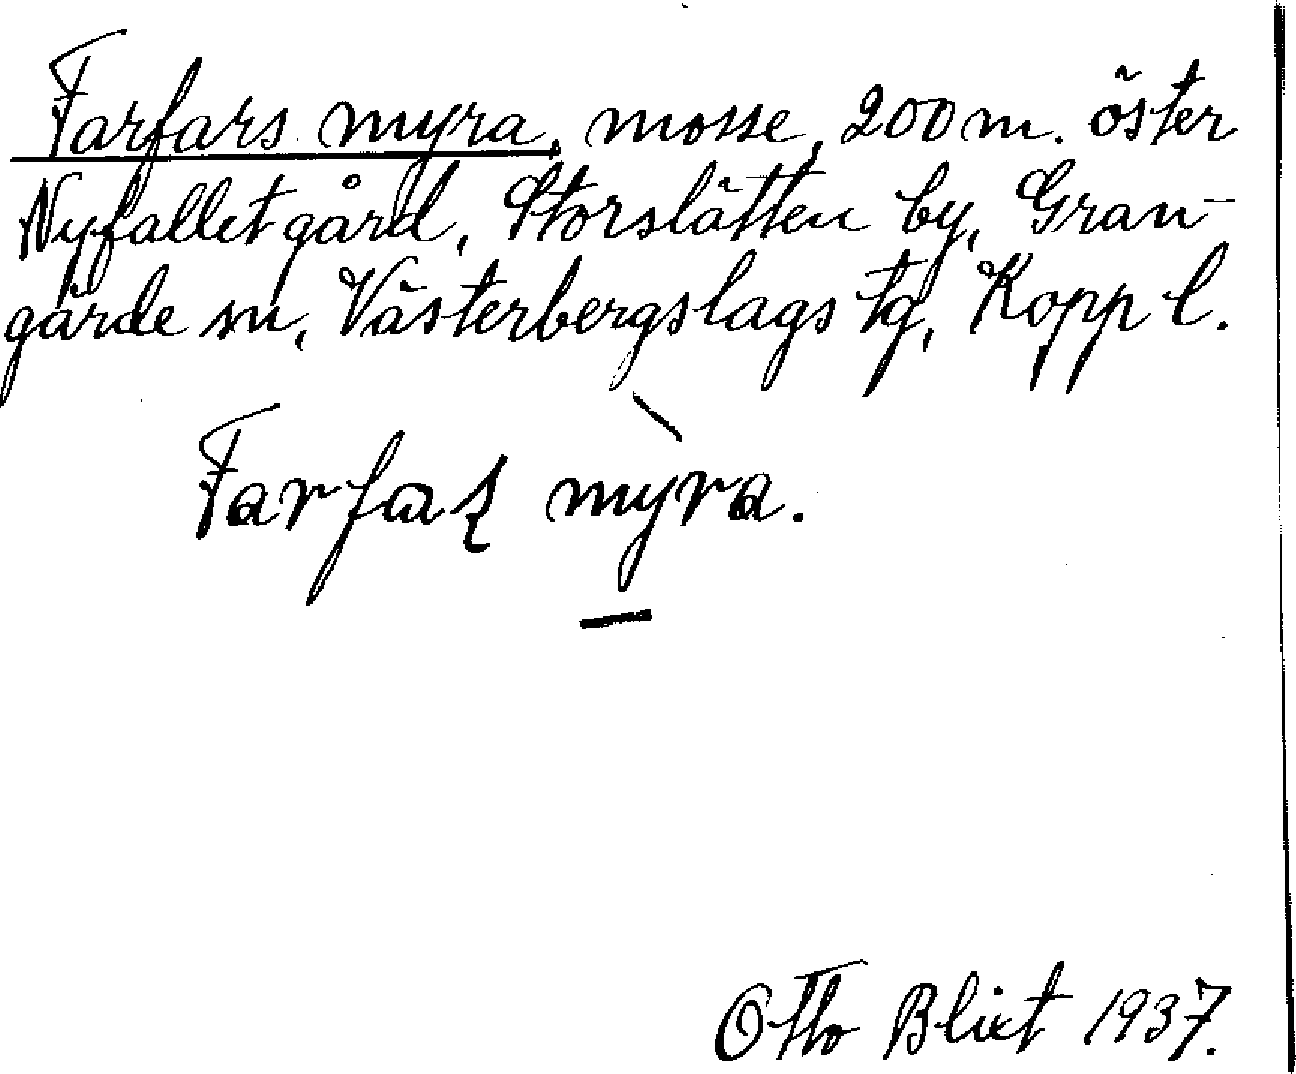 Farfars myra, mosse, 200 m. öster
Nyfallet gård, Storslätten by, Gran-
gärde sn, Västerbergslags tg, Kopp l.
Farfaʂ mỳra.
Otto Blixt 1937.